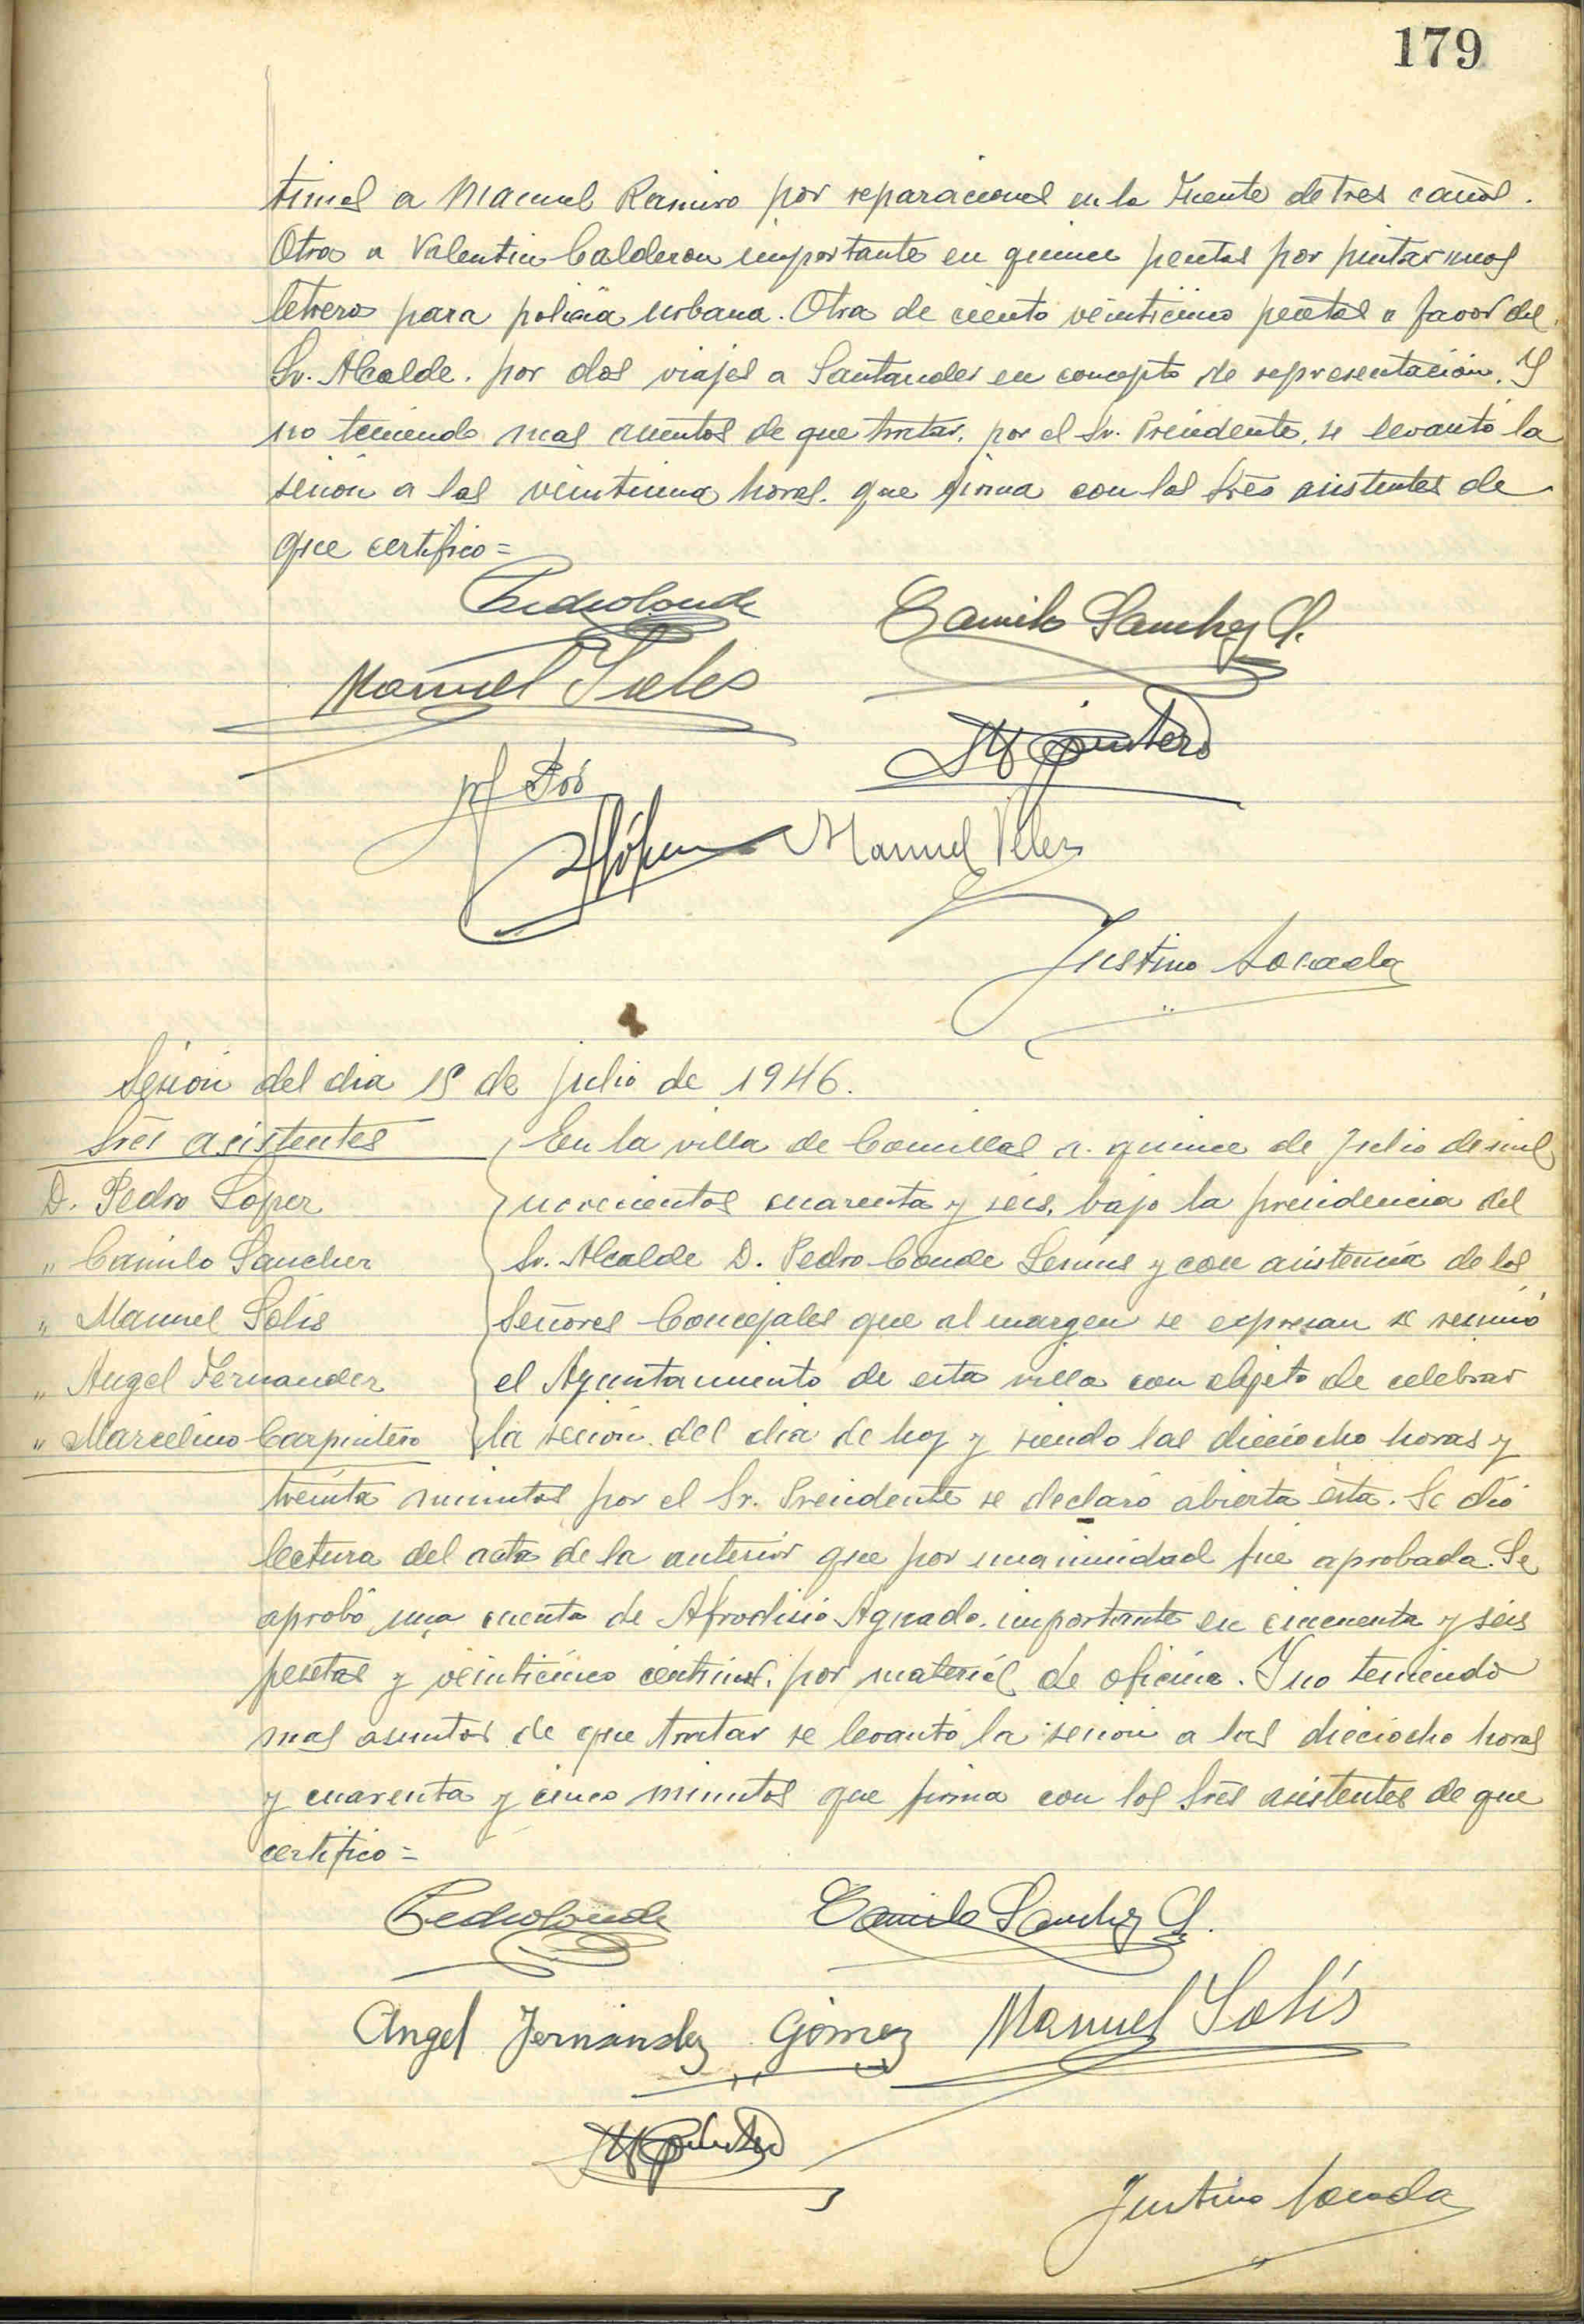 179
timos a Manuel Ramiro por reparaciones en la Fuente de tres caños.
Otra a Valentin Calderon importante en quince pesetas por pintar unos
letreros para policia urbana. Otra de ciento veinticinco pesetas a favor del
Sr. Alcalde. por dos viajes a Santander en concepto de representación. Y
no teniendo mas asuntos de que tratar, por el Sr. Presidente, se levantó la
sesión a las veintiuna horas. que firma con los Sres asistentes de
que certifico =
Pedro Conde
Camilo Sanchez G.
Manuel Solis
Carpintero
López
Manuel Velez
Justino
Sesión del dia 15 de julio de 1946.
Sres asistentes
D. Pedro Lopez
" Camilo Sanchez
" Manuel Solis
" Angel Fernandez
" Marcelino Carpintero
En la villa de Comillas a quince de Julio de mil
novecientos cuarenta y seis, bajo la presidencia del
Sr. Alcalde D. Pedro Conde y con asistencia de los
Señores Concejales que al margen se expresan se reunió
el Ayuntamiento de esta villa con objeto de celebrar
la sesión del dia de hoy y siendo las dieciocho horas y
treinta minutos por el Sr. Presidente se declaró abierta ésta. Se dió
lectura del acta de la anterior que por unanimidad fue aprobada. Se
aprobó una cuenta de Afrodisio Aguado. importante en cincuenta y seis
pesetas y veinticinco céntimos, por material de oficina. Y no teniendo
mas asuntos de que tratar se levantó la sesión a las dieciocho horas
y cuarenta y cinco minutos que firma con los Sres asistentes de que
certifico =
Pedro Conde
Camilo Sanchez G.
Angel Fernández Gómez
Manuel Solís
Carpintero
Justino